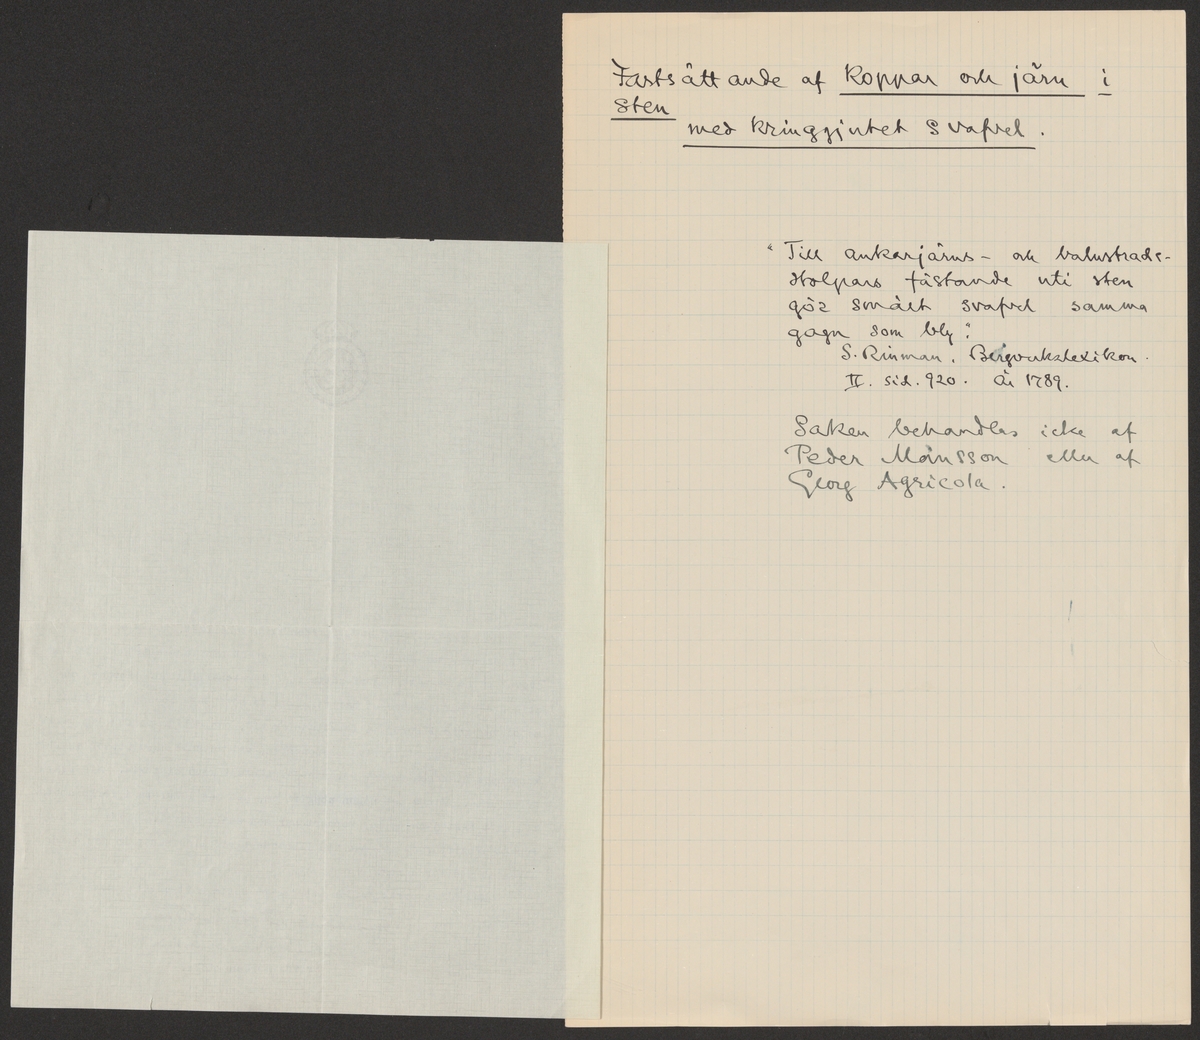 Fastsättande af koppar och järn i
sten
med kringgjutet svafvel.
"Till ankarjärns- och balustrads-
stolpars fästande uti sten
gör smält svafvel samma
gagn som bly."
S. Rinman. Bergverkslexikon.
II. sid. 920. År 1789.
Saken behandlas icke af
Peder Månsson eller af
Georg Agricola.